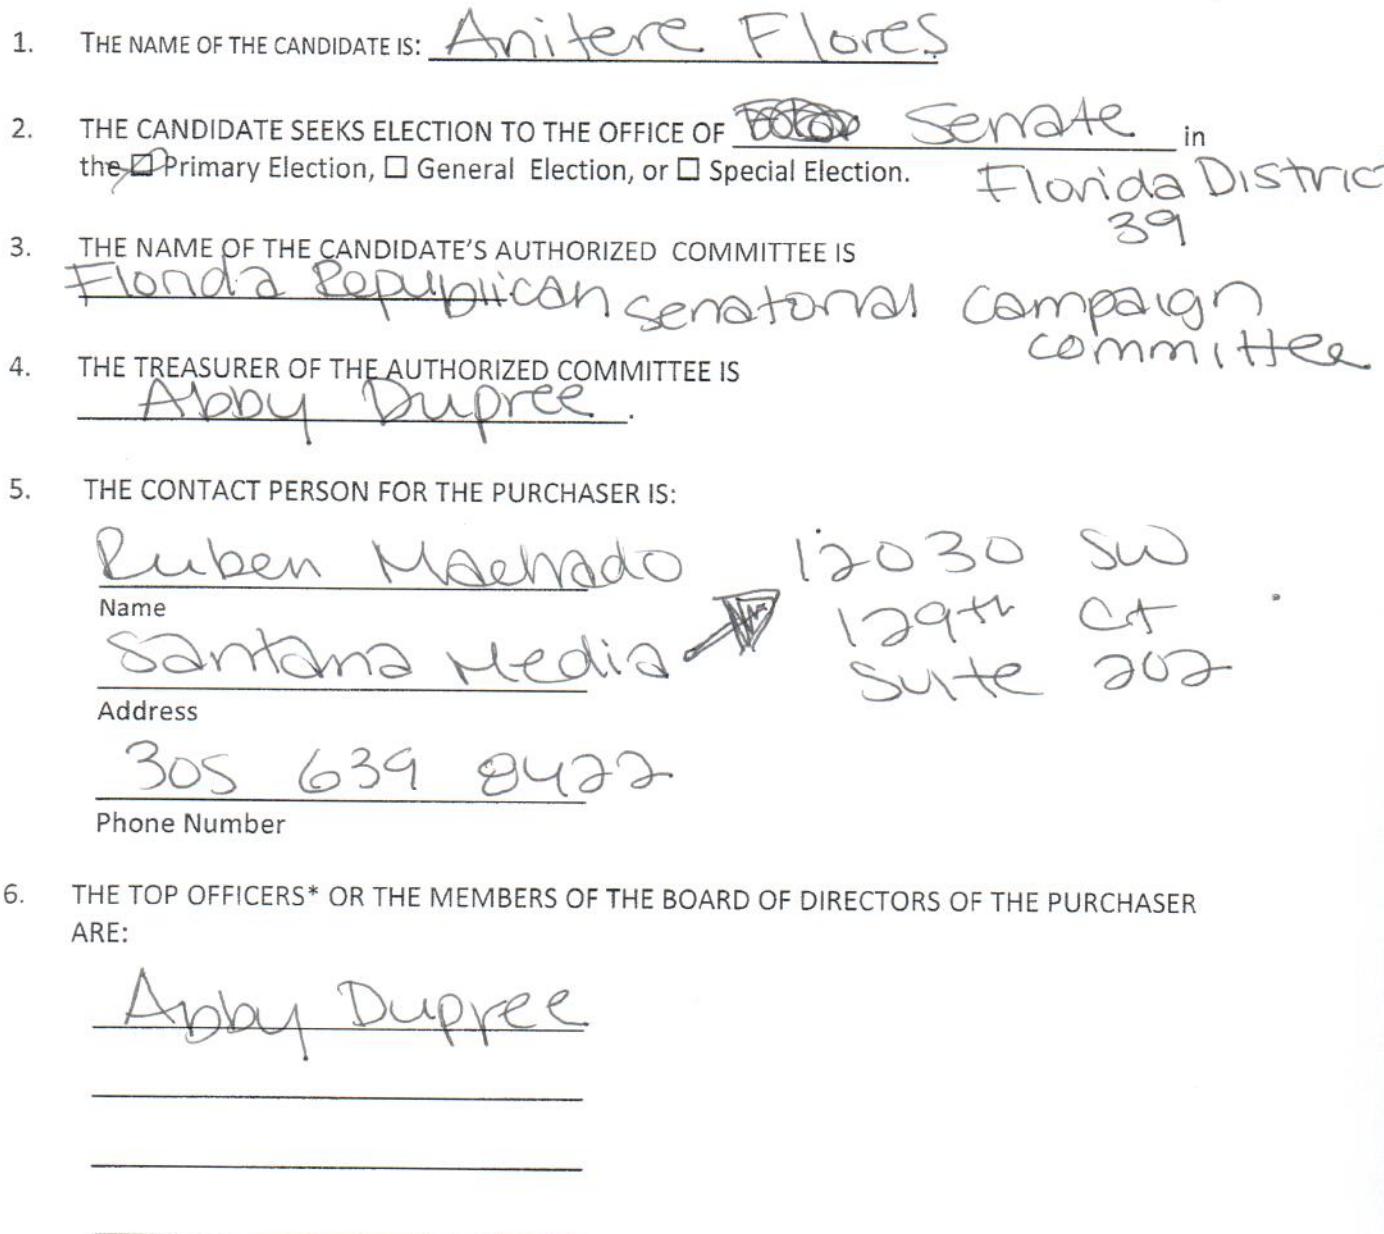 1. THE NAME OF THE CANDIDATE IS: Anitere Flores
2. THE CANDIDATE SEEKS ELECTION TO THE OFFICE OF Senate in
the ☑ Primary Election, ☐ General Election, or ☐ Special Election.
Florida District
39
3. THE NAME OF THE CANDIDATE'S AUTHORIZED COMMITTEE IS
Florida Republican senatorial campaign
committee
4. THE TREASURER OF THE AUTHORIZED COMMITTEE IS
Abby Dupree.
5. THE CONTACT PERSON FOR THE PURCHASER IS:
Ruben Machado
Name
Santana Media
Address
12030 SW
129th Ct
Suite 202
305 639 8422
Phone Number
6. THE TOP OFFICERS* OR THE MEMBERS OF THE BOARD OF DIRECTORS OF THE PURCHASER
ARE:
Abby Dupree